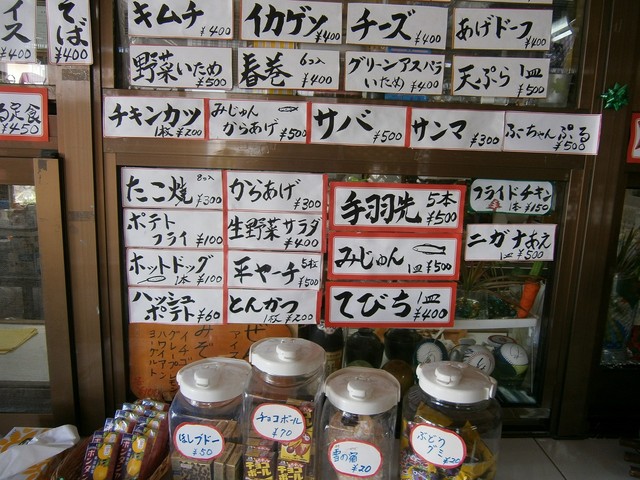 イス
¥400
そば
¥400
キムチ
¥400
イカゲソ
¥400
チーズ
¥400
あげドーフ
¥400
野菜いため
¥500
春巻
6コ入
¥400
グリーンアスパラ
いため ¥400
天ぷら 1皿
¥500
る定食
¥450
チキンカツ
1枚 ¥200
みじゅん
からあげ ¥500
サバ
¥500
サンマ
¥300
ふーちゃんぷる
¥500
たこ焼
8コ入
¥300
からあげ
¥300
手羽先 5本
¥500
フライドチキン
1本 ¥150
ポテト
フライ ¥100
生野菜サラダ
¥400
ニガナあえ
1皿 ¥500
ホットドッグ
1本 ¥100
平ヤーチ 5枚
¥500
みじゅん
1皿 ¥500
ハッシュ
ポテト ¥60
とんかつ
1枚 ¥200
てびち 1皿
¥400
ぜ
アイス
みぞ
イチゴ
グレープ
ハワイアン
ヨーグルト
ほしブドー
¥50
チョコボール
¥70
雪の宿
¥20
ぶどう
グミ ¥20